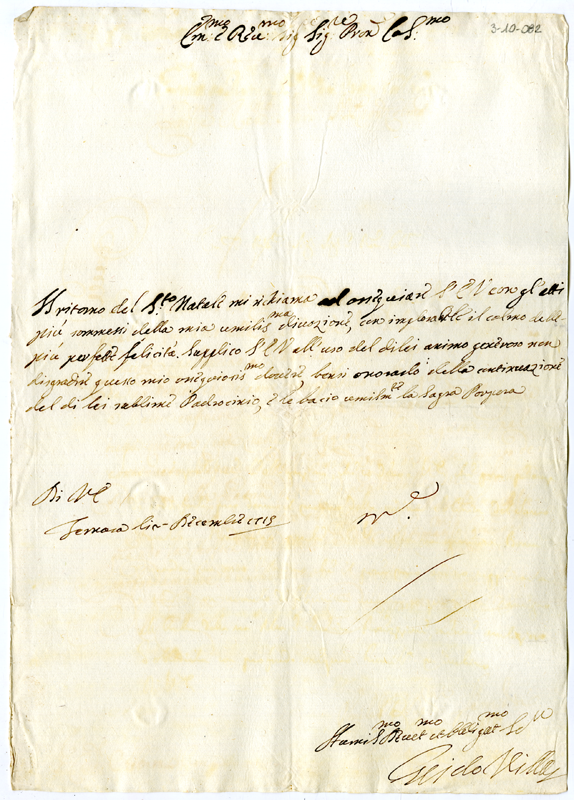 3-10-082
Em:mo e Rev:mo Sig Sig.re Pron Col:mo
Il ritorno del S:to Natale mi richiama ad ossequiare l'E V con gl'atti
più sommessi della mia umilis:ma divozione, con implorarle il colmo delle
più perfette felicità. Supplico l'E V all'uso del di lei animo generoso non
disgradire questo mio ossequiosis:mo dovere, bensi onorarlo della continuazione
del di lei sublime Padrocinio, e le bacio umilm:te la Sagra Porpora
Di V E
Ferrara li Decembre 1715
Humil:mo Devot:mo et obbligat:mo Se:re
Guido Villa